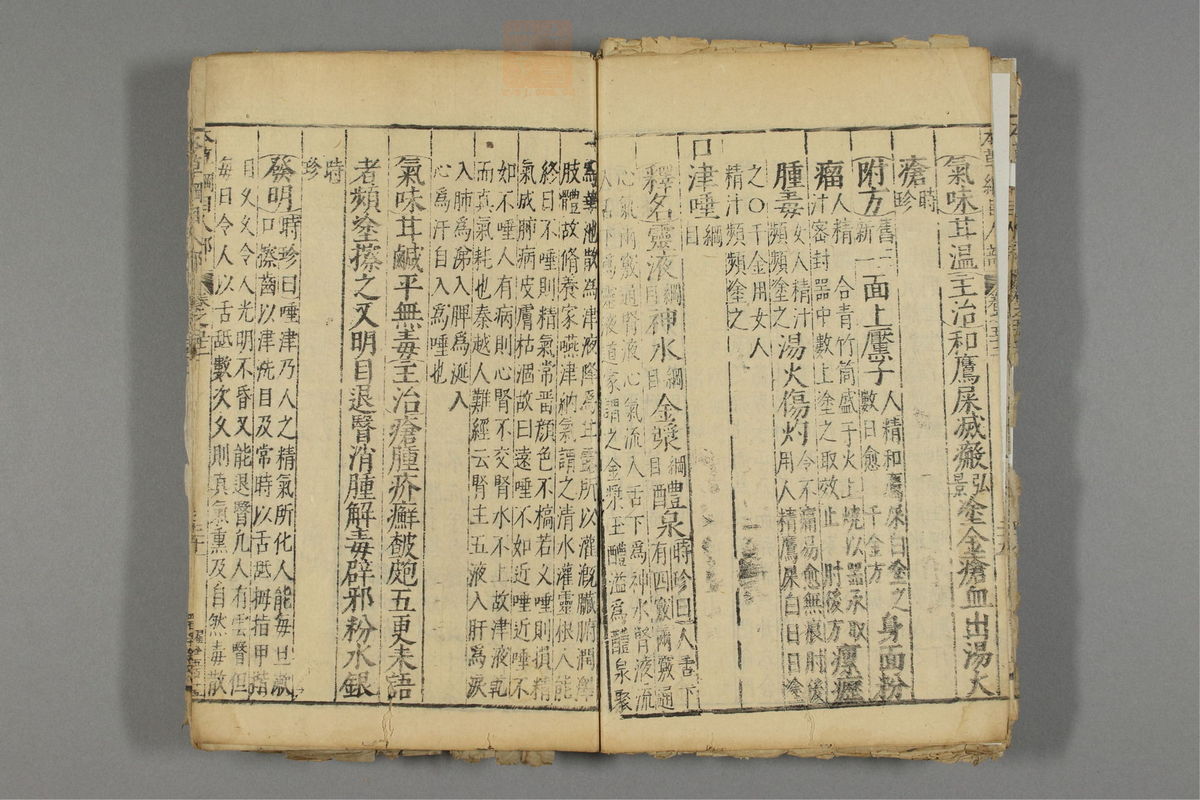 氣味甘溫主治和鷹屎滅瘢弘景塗金瘡血出湯火
瘡時珍
附方舊二新一面上黡子人精和鷹屎白塗之數日愈千金方身面粉
瘤人精一合青竹筒盛于火上燒以器承取汁密封器中數上塗之取效止肘後方瘰癧
腫毒女人精汁頻頻塗之湯火傷灼令不痛易愈無痕肘後用人精鷹屎白日日塗
之○千金用女人
精汁頻頻塗之
口津唾綱目
釋名靈液綱目神水綱目金漿綱目醴泉時珍曰人舌下有四竅兩竅通
心氣兩竅通腎液心氣流入舌下為神水腎液流
入舌下為靈液道家謂之金漿玉醴溢為醴泉聚
為華池散為津液降為甘露所以灌漑臟腑潤澤
肢體故脩養家嚥津納氣謂之清水灌靈根人能
終日不唾則精氣常畱顔色不槁若久唾則損精
氣成肺病皮膚枯涸故曰遠唾不如近唾近唾不
如不唾人有病則心腎不交腎水不上故津液乾
而真氣耗也秦越人難經云腎主五液入肝爲淚
入肺爲涕入脾爲涎入
心爲汗自入爲唾也
氣味甘鹹平無毒主治瘡腫疥癬皶皰五更未語
者頻塗擦之又明目退瞖消腫解毒辟邪粉水銀
時珍
發明時珍曰唾津乃人之精氣所化人能每旦漱
口擦齒以津洗目及常時以舌舐拇指甲揩
目久久令人光明不昏又能退瞖凡人有雲瞖但
每日令人以舌舐數次久則真氣熏及自然毒散